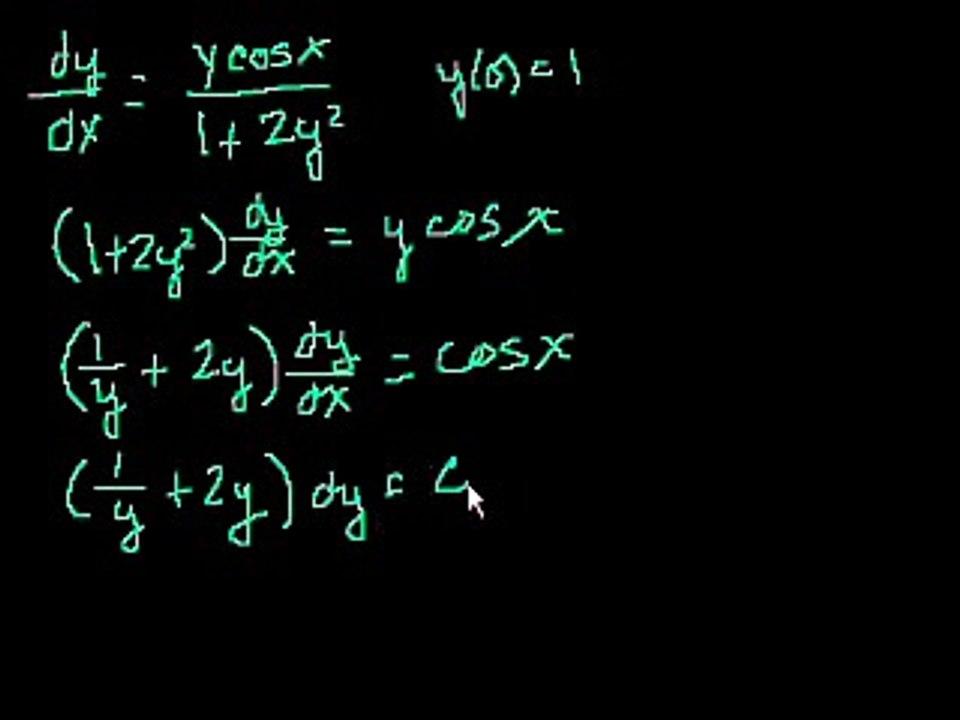 dy/dx = y cos x / 1 + 2y² y(0) = 1
(1+2y²) dy/dx = y cos x
(1/y + 2y) dy/dx = cos x
(1/y + 2y) dy = c